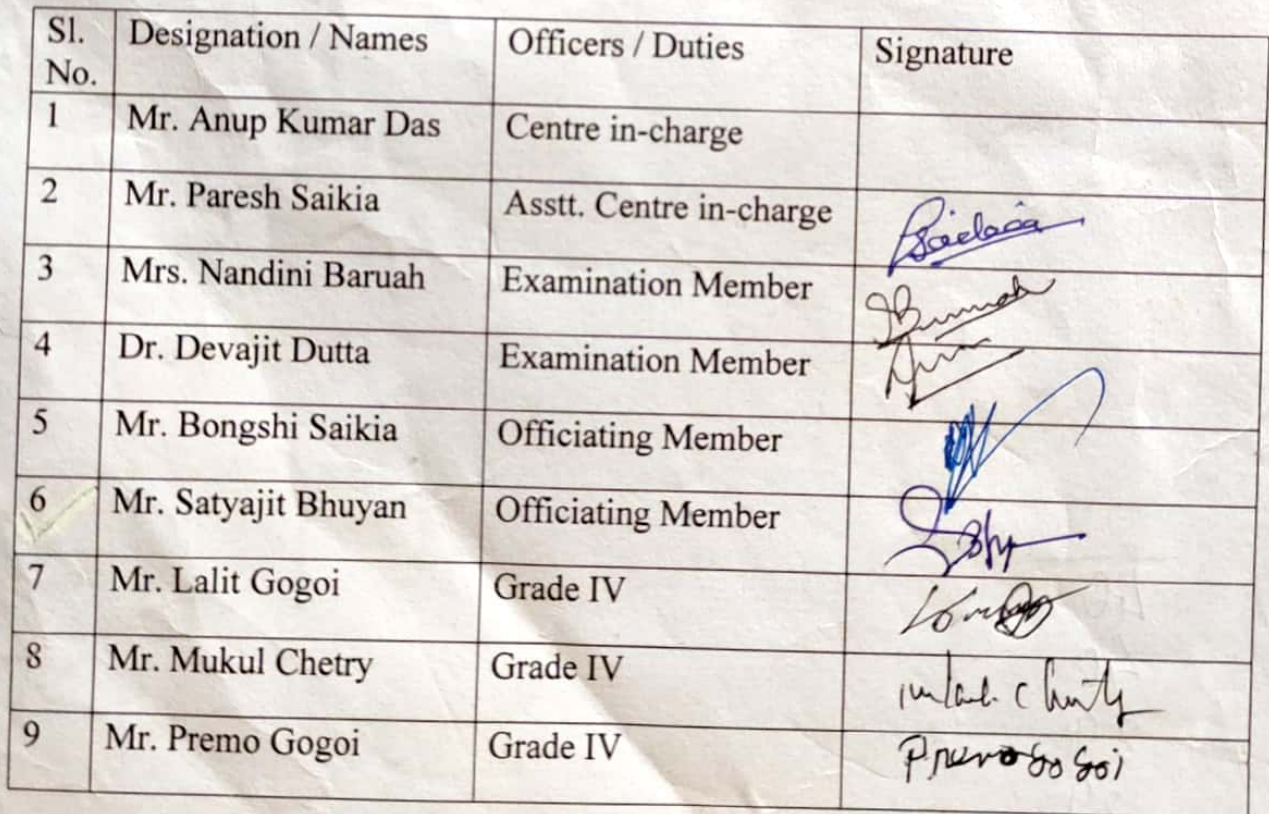 Sl. No. Designation / Names Officers / Duties Signature
1 Mr. Anup Kumar Das Centre in-charge
2 Mr. Paresh Saikia Asstt. Centre in-charge
3 Mrs. Nandini Baruah Examination Member
4 Dr. Devajit Dutta Examination Member
5 Mr. Bongshi Saikia Officiating Member
6 Mr. Satyajit Bhuyan Officiating Member
7 Mr. Lalit Gogoi Grade IV
8 Mr. Mukul Chetry Grade IV
9 Mr. Premo Gogoi Grade IV Premo Gogoi